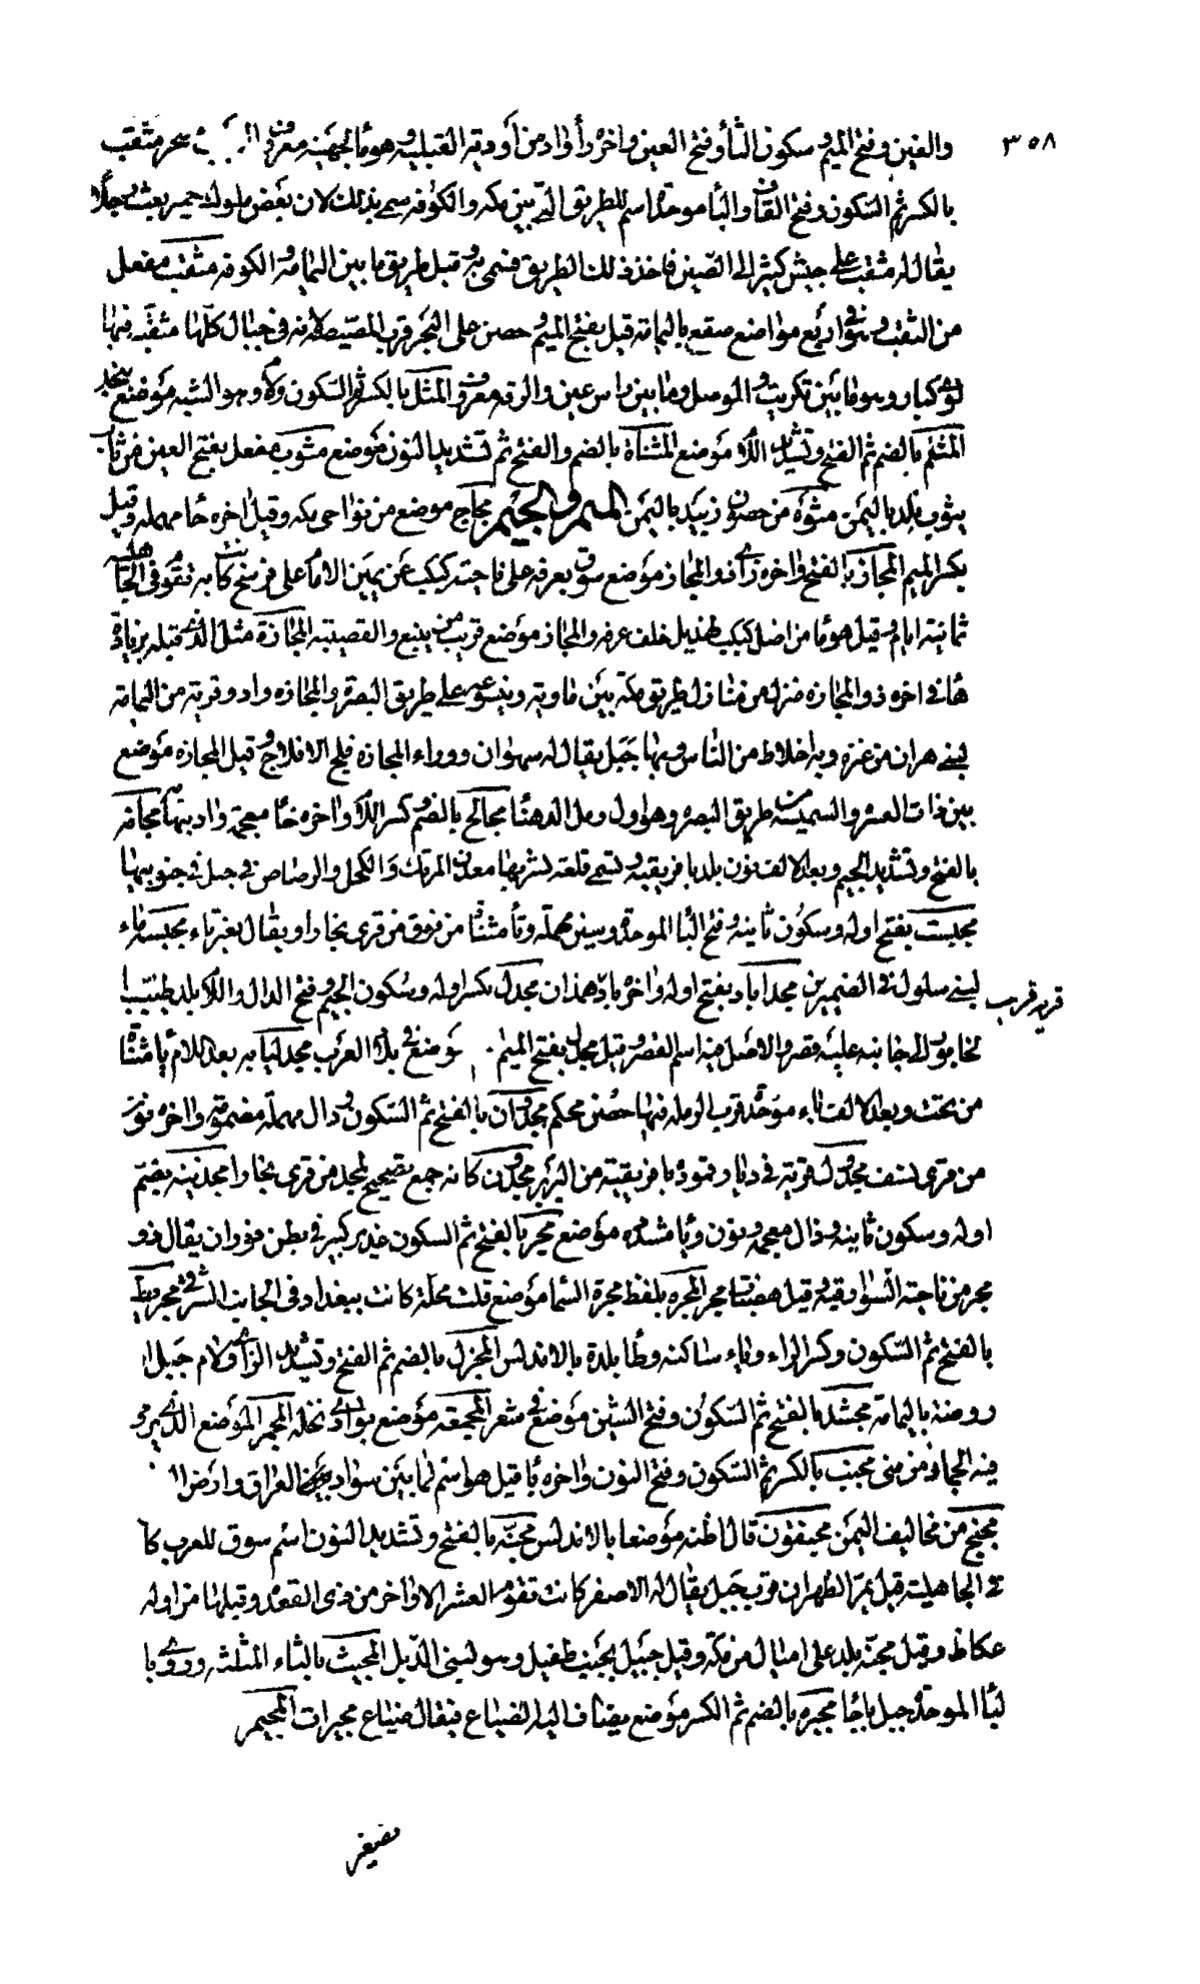 ٣٥٨
والغين وفتح الميم وسكون الثا وفتح العين واخره را واد من أودية القبلية وهو ما لجهينه معروف مثقب
بالكسر ثم السكون وفتح القاف والبا موحدة اسم للطريق التي بين مكه والكوفه سمي بذلك لان بعض ملوك حمير بعث رجلا
يقال له مثقب على جيش كثير الى الصين فاخذ ذلك الطريق فسمى به وقيل طريق ما بين اليمامه والكوفه مثقب مفعل
من الثقب وهو في اربع مواضع صقع باليمامه قيل بفتح الميم حصن على البحر قرب المصيصه لانه في جبال كلها مثقبه فيها
كوى كبار وهو ما بين تكريت والموصل وما بين راس عين والرقه معروف المثل بالكسر ثم السكون ولام وهو الشبه موضع بنجد
المثلم بالضم ثم الفتح وتشديد اللام موضع المثناة بالضم والفتح ثم تشديد النون موضع مثوب مفعل بفتح العين من ثاب
يثوب بلد باليمن مثوه من حصون زبيد باليمن الميم والجيم مجاج موضع من نواحى مكه وقيل اخره حا مهمله وقيل
بكسر الميم المجاز بالفتح واخره زاى ذو المجاز موضع سوق بعرفه على ناحية كبكب عن يمين الامام على فرسخ كانت به تقوم في الجاهليه
ثمانية ايام وقيل هو ما من اصل كبكب لهذيل خلف عرفه والمجاز موضع قريب من ينبع والقصيبه المجازة مثل الذى قبله بزيادة
ها في اخره ذو المجازه منزل من منازل طريق مكة بين ماوية وينسوعه على طريق البصرة والمجازه واد وقرية من اليمامه
لبنى هزان من عنزه وبه اخلاط من الناس وبها جبل يقال له سهوان ووراء المجازه فلج الافلاج وقيل المجازه موضع
بين ذات العشر والسمينه من طريق البصره وهو اول رمل الدهنا مجالخ بالضم وكسر اللام واخره خا معجمة واد بتهامه مجانه
بالفتح وتشديد الجيم وبعد الالف نون بلد بافريقيه تسمى قلعة بشر بها معدن المرتك والكحل والرصاص في جبل في جنوبيها
مجبست بفتح اوله وسكون ثانيه وفتح البا الموحده وسين مهملة وتا مثناة من فوق من قرى بخارا ويقال بغير تاء مجبسه ماء
لبنى سلول في الضميرين مجداباد بفتح اوله واخره باد همذان مجدل بكسر اوله وسكون الجيم وفتح الدال واللام بلد طيب
قريه قرب
بالخابور الى جانبه عليه قصر والاصل فيه اسم القصر وقيل مجدل بفتح الميم موضع في بلاد العرب مجدليابه بعد اللام يا مثناة
من تحت وبعد الالف باء موحده قرب الرمله فيها حصن محكم مجدوان بالفتح ثم السكون ودال مهملة مضمومة واخره نون
من قرى نسف مجدول قرية في ديار قمودة بافريقية من البربر مجدون كانه جمع تصحيح لمجد من قرى بخارا مجذنيه بضم
اوله وسكون ثانيه وذال معجمه ونون ويا مشدده موضع مجر بالفتح ثم السكون غدير كبير في بطن قوران يقال ذو
مجر من ناحية السوارقيه وقيل هضبات مجر المجره بلفظ مجرة السما موضع قلت محلة كانت ببغداد في الجانب الشرقي مجريط
بالفتح ثم السكون وكسر الراء وياء ساكنه وطا بلدة بالاندلس المجزل بالضم ثم الفتح وتشديد الزاى ولام جبل او
روضة باليمامة مجشد بالفتح ثم السكون وفتح الشين موضع في شعر المجمعة موضع بوادى نخله المجمر الموضع الذي يرمى
فيه الجمار من منى مجنب بالكسر ثم السكون وفتح النون واخره با قيل هو اسم لما بين سواد العراق وارض
مجنح من مخاليف اليمن مجنقون قال اظنه موضعا بالاندلس مجنه بالفتح وتشديد النون اسم سوق للعرب كا
في الجاهلية قيل بمر الظهران قرب جبل يقال له الاصفر كانت تقوم العشر الاواخر من ذي القعده وقبلها من اوله
عكاظ وقيل مجنة بلد على اميال من مكة وقيل جبيل بجنب طفيل وهو لبنى الديل المجيث بالثاء المثلثه وروى با
لبا الموحدة جبل باجا مجيره بالضم ثم الكسر موضع يضاف اليه الضباع فيقال ضباع مجيرات المجيمر
تصغير